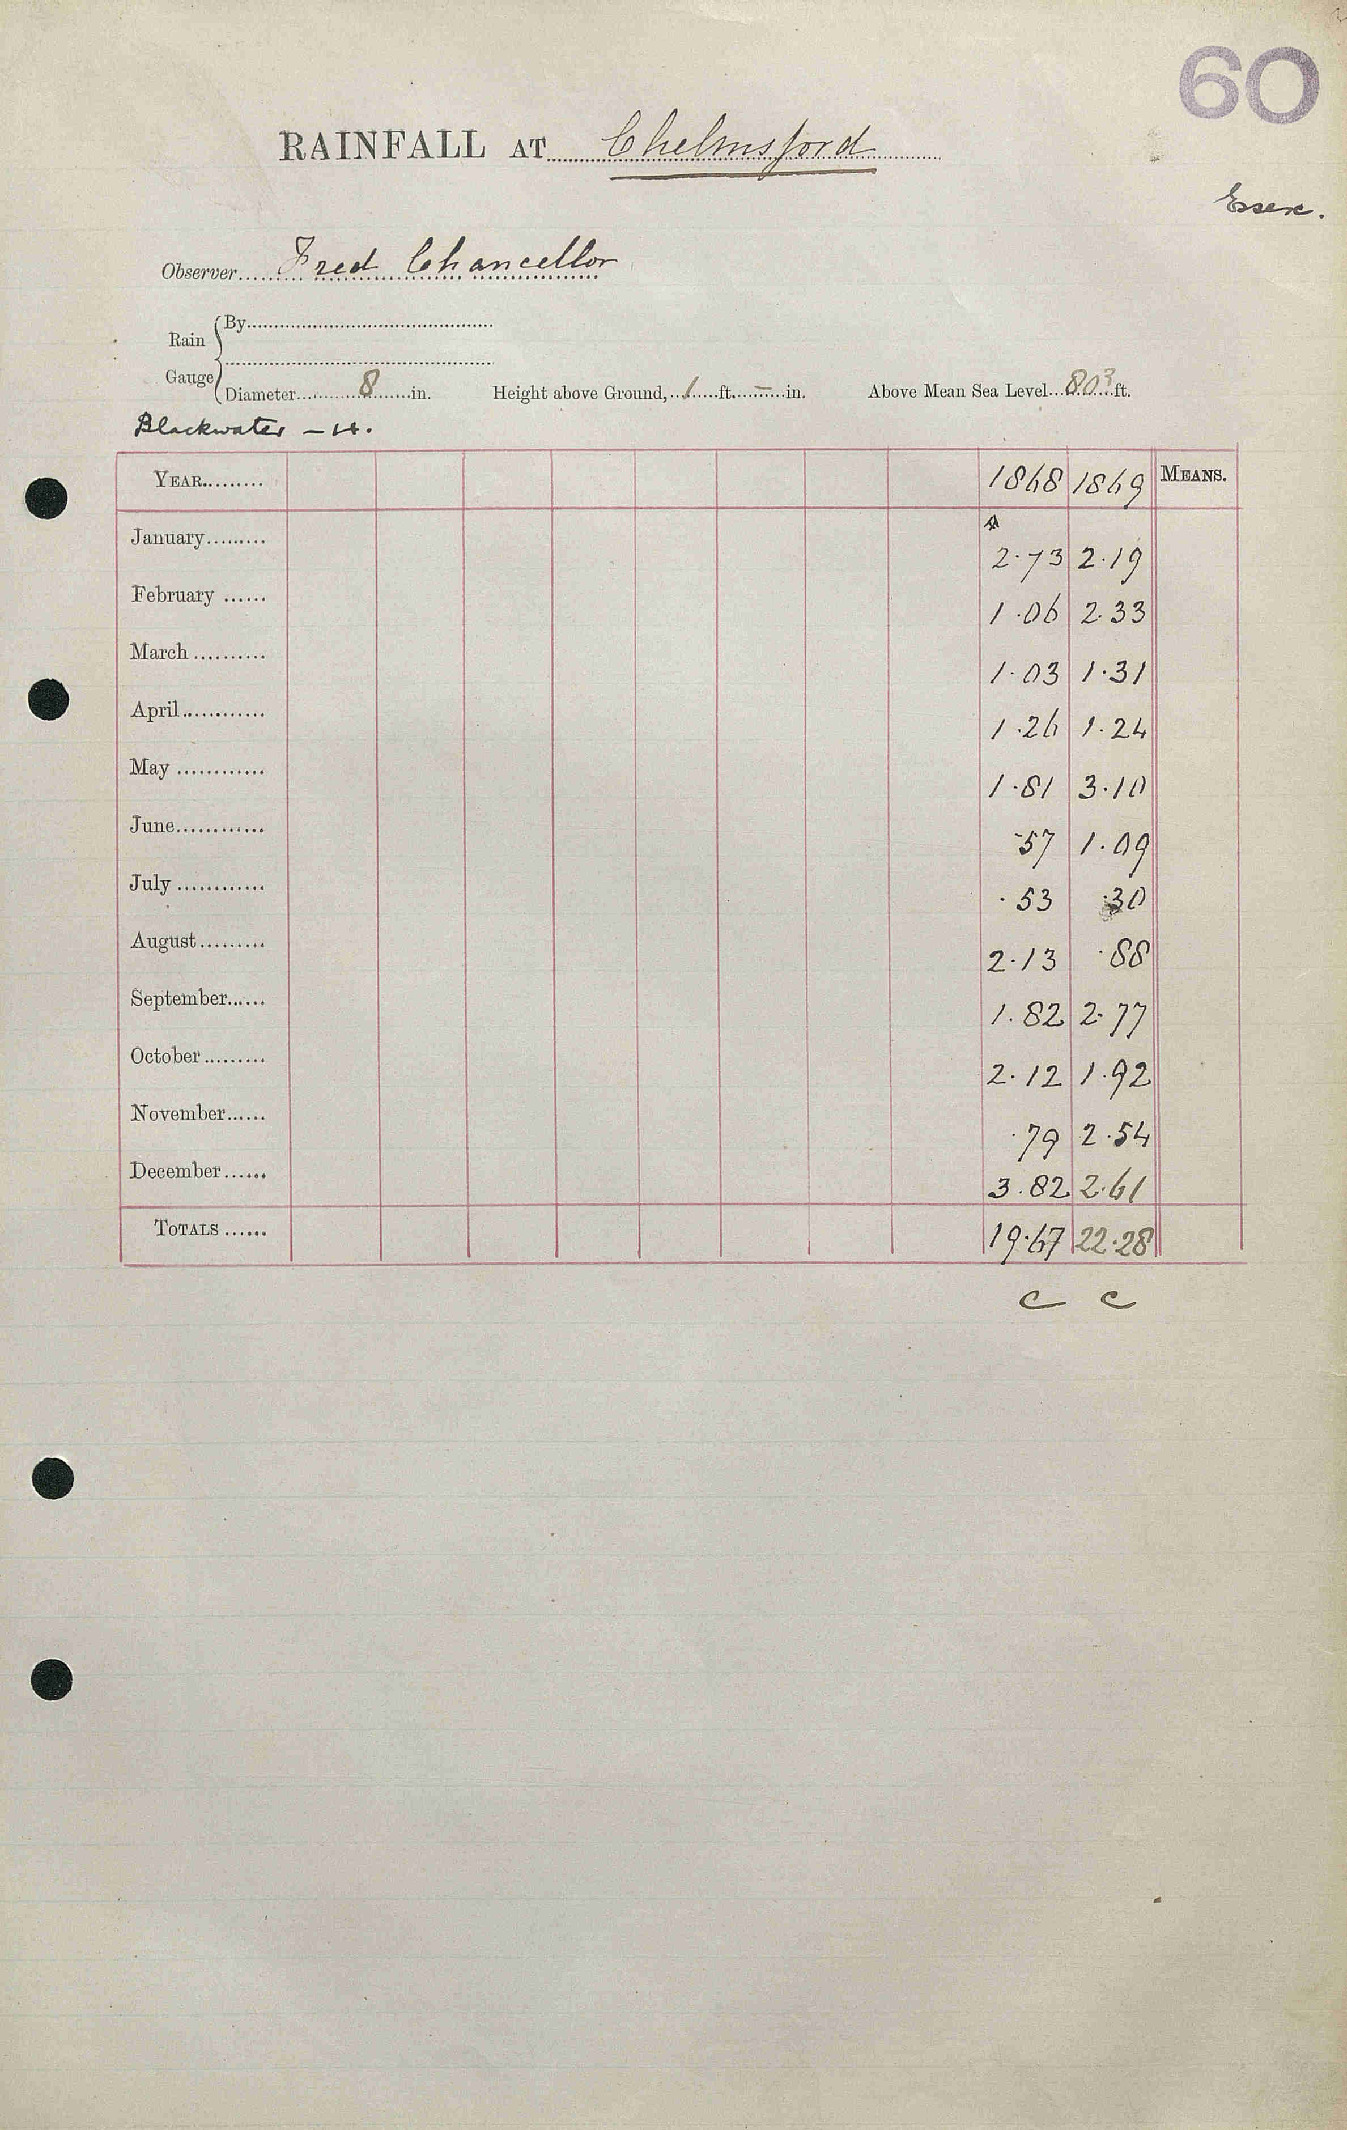 60
RAINFALL AT Chelmsford
Essex.
Observer Fred Chancellor
Rain Gauge
By
Diameter 8 in. Height above Ground, 1 ft. – in. Above Mean Sea Level 80 ft.
Blackwater – H.
YEAR 1868 1869 MEANS.
January 2.73 2.19
February 1.06 2.33
March 1.03 1.31
April 1.26 1.24
May 1.81 3.10
June .57 1.09
July .53 .30
August 2.13 .88
September 1.82 2.77
October 2.12 1.92
November .79 2.54
December 3.82 2.61
TOTALS 19.67 22.28
C C